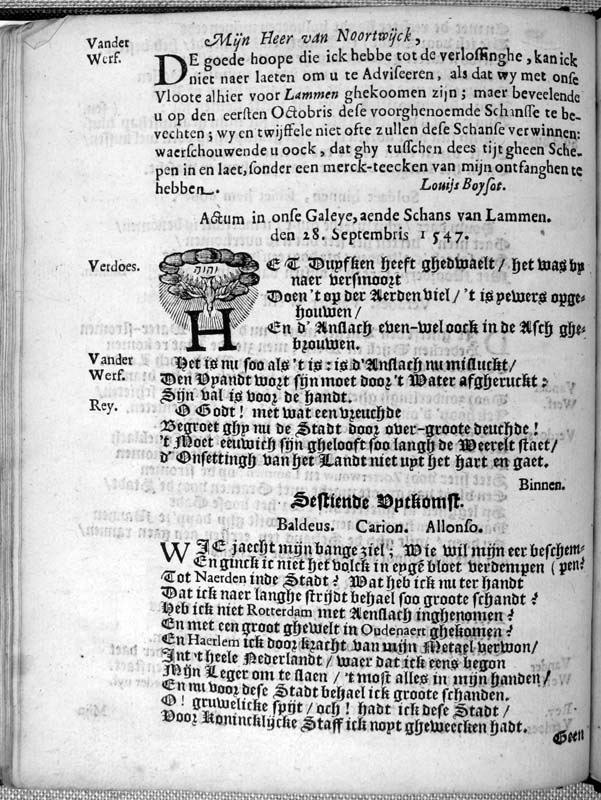 Mijn Heer van Noortwijck,
Vander
Werf.
DE goede hoope die ick hebbe tot de verlossinghe, kan ick
niet naer laeten om u te Adviseeren, als dat wy met onse
Vloote alhier voor Lammen ghekoomen zijn; maer beveelende
u op den eersten Octobris dese voorghenoemde Schansse te be-
vechten; wy en twijffele niet ofte zullen dese Schanse verwinnen:
waerschouwende u oock, dat ghy tusschen dees tijt gheen Sche-
pen in en laet, sonder een merck-teecken van mijn ontfanghen te
hebben.
Louijs Boysot.
Actum in onse Galeye, aende Schans van Lammen.
den 28. Septembris 1547.
Verdoes.
יהוה
HET Duyfken heeft ghedwaelt / het was by
naer versmoort
Doen 't op der Aerden viel / 't is yewers opge-
houwen /
En d' Anslach even-wel oock in de Asch ghe-
brouwen.
Vander
Werf.
Het is nu soo als 't is: is d'Anslach nu misluckt /
Den Vyandt wort sijn moet door 't Water afgheruckt:
Sijn val is voor de handt.
Rey.
O Godt! met wat een vreuchde
Begroet ghy nu de Stadt door over-groote deuchde!
't Moet eeuwich sijn ghelooft soo langh de Weerelt staet /
d'Onsettingh van het Landt niet uyt het hart en gaet.
Binnen.
Sestiende Uytkomst.
Baldeus. Carion. Allonso.
WIE jaecht mijn bange ziel; Wie wil mijn eer beschem-
(pen?
En ginck ic niet het volck in eygē bloet verdempen
Tot Naerden inde Stadt? Wat heb ick nu ter handt
Dat ick naer langhe strijdt behael soo groote schandt?
Heb ick niet Rotterdam met Aenslach inghenomen?
En met een groot ghewelt in Oudenaert ghekomen?
En Haerlem ick door kracht van mijn Metael verwon /
Int 't heele Nederlandt / waer dat ick eens begon
Mijn Leger om te slaen / 't most alles in mijn handen /
En nu voor dese Stadt behael ick groote schanden.
O! gruwelicke spijt / och! hadt ick dese Stadt /
Voor Konincklijcke Staff ick noyt gheweecken hadt.
Geen